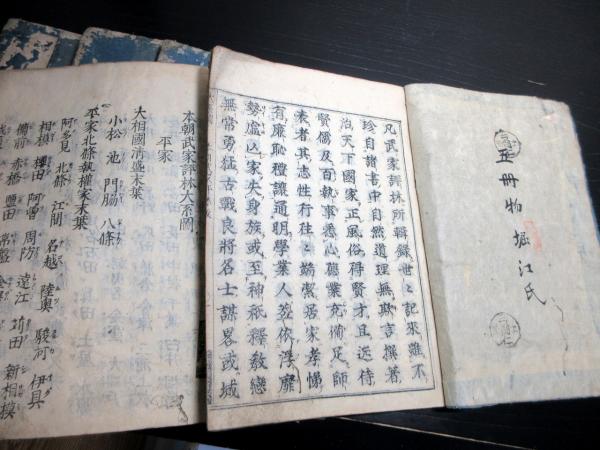 五冊物堀江氏
凡武家評林所輯録世々記來雖不
珍自諸書中自然道理無欺言撰著
治天下國家正風俗得賢才且近侍
賢儒及百執事悉心德業充備足師
表者其志性行往々端潔居家孝悌
有廉恥種讓通明學業人荵依浮靡
勢盛凶家失身族或至神祇釋教戀
無常勇猛古戰良將名士謀畧或城
本朝武家評林大系圖
平家
大相國清盛末葉
小松 池 門脇 八條
平家北條執權家末葉
阿多見 北條 江間 名越 陸奥 駿河 伊具
相模 櫻田 阿曽 周防 遠江 苅田 新相模
備前 赤橋 鹽田 常盤